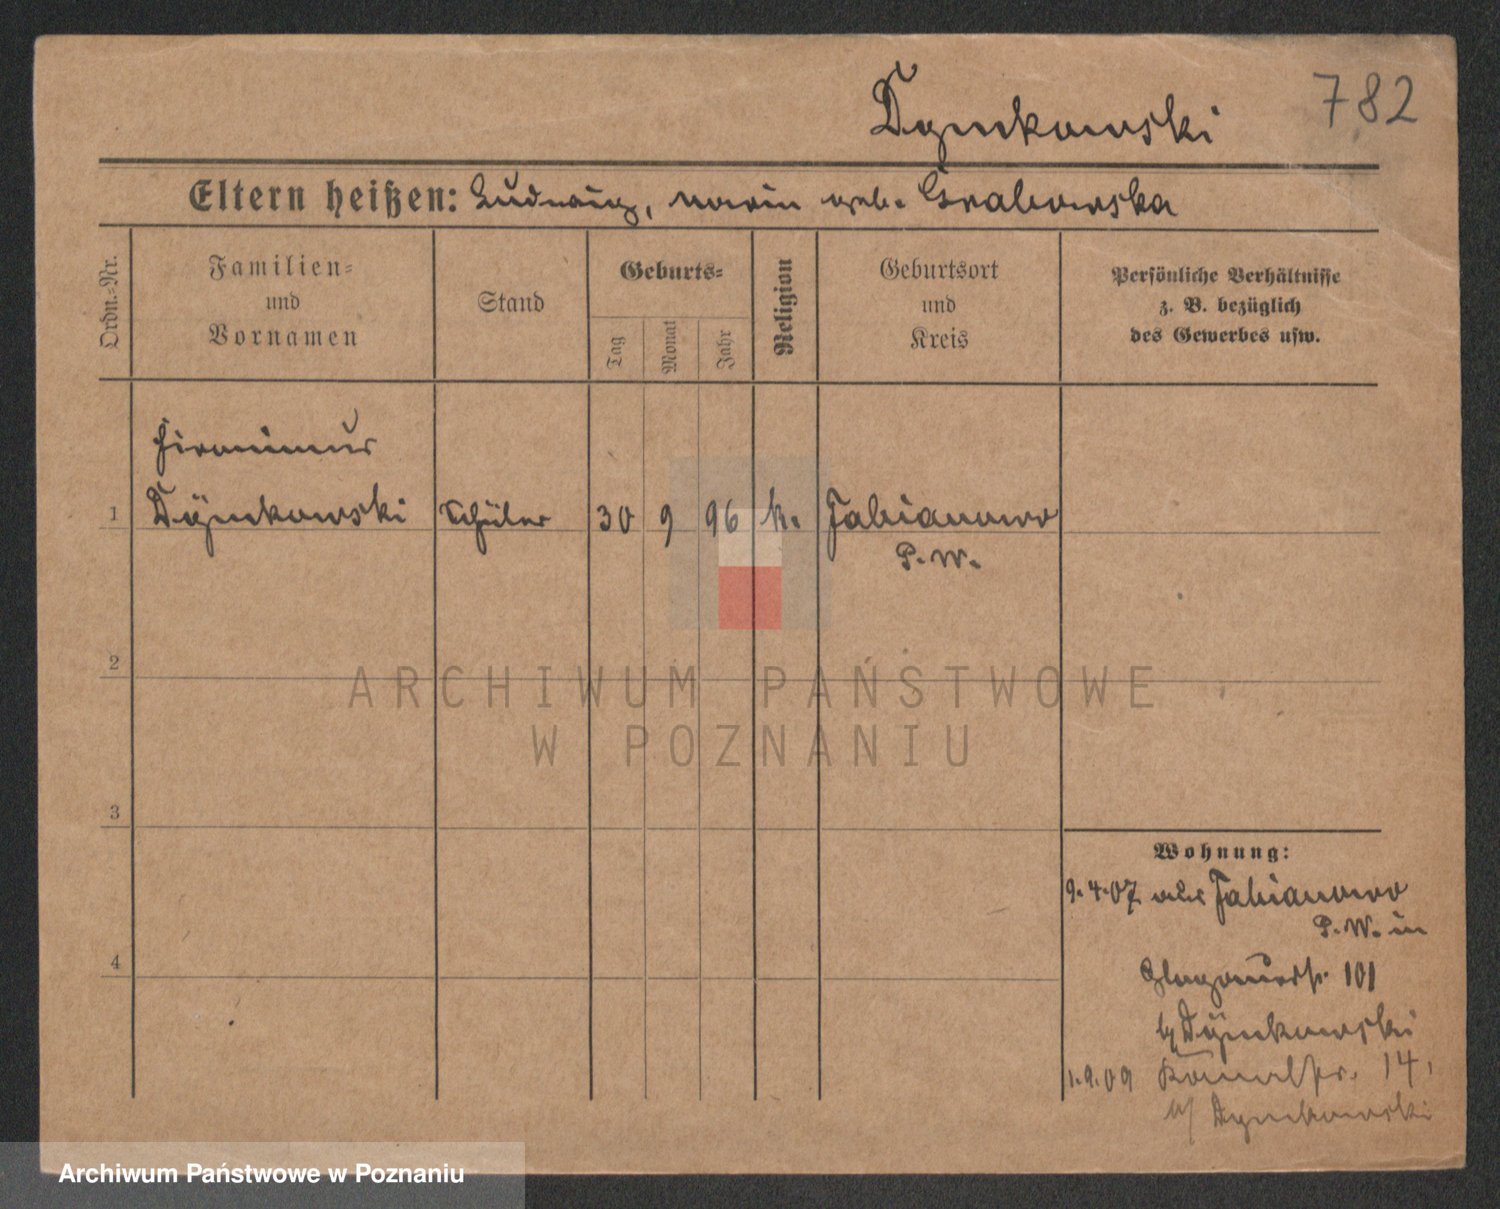 Dynkowski 782
Eltern heißen: Ludwig, Marie geb. Grabowska
Ordn.-Nr.
Familien-
und
Vornamen
Stand
Geburts-
Tag
Monat
Jahr
Religion
Geburtsort
und
Kreis
Persönliche Verhältnisse
z. B. bezüglich
des Gewerbes usw.
Firminus
1 Dÿnkowski Schüler 30 9 96 k. Fabianowo
P. W.
2
ARCHIWUM PAŃSTWOWE
W POZNANIU
3
Wohnung:
9.4.07 aus Fabianowo
P. W. in
4
Glogauerstr. 101
b/ Dÿnkowski
1.9.09 Kanalstr. 14,
b/ Dynkowski
Archiwum Państwowe w Poznaniu